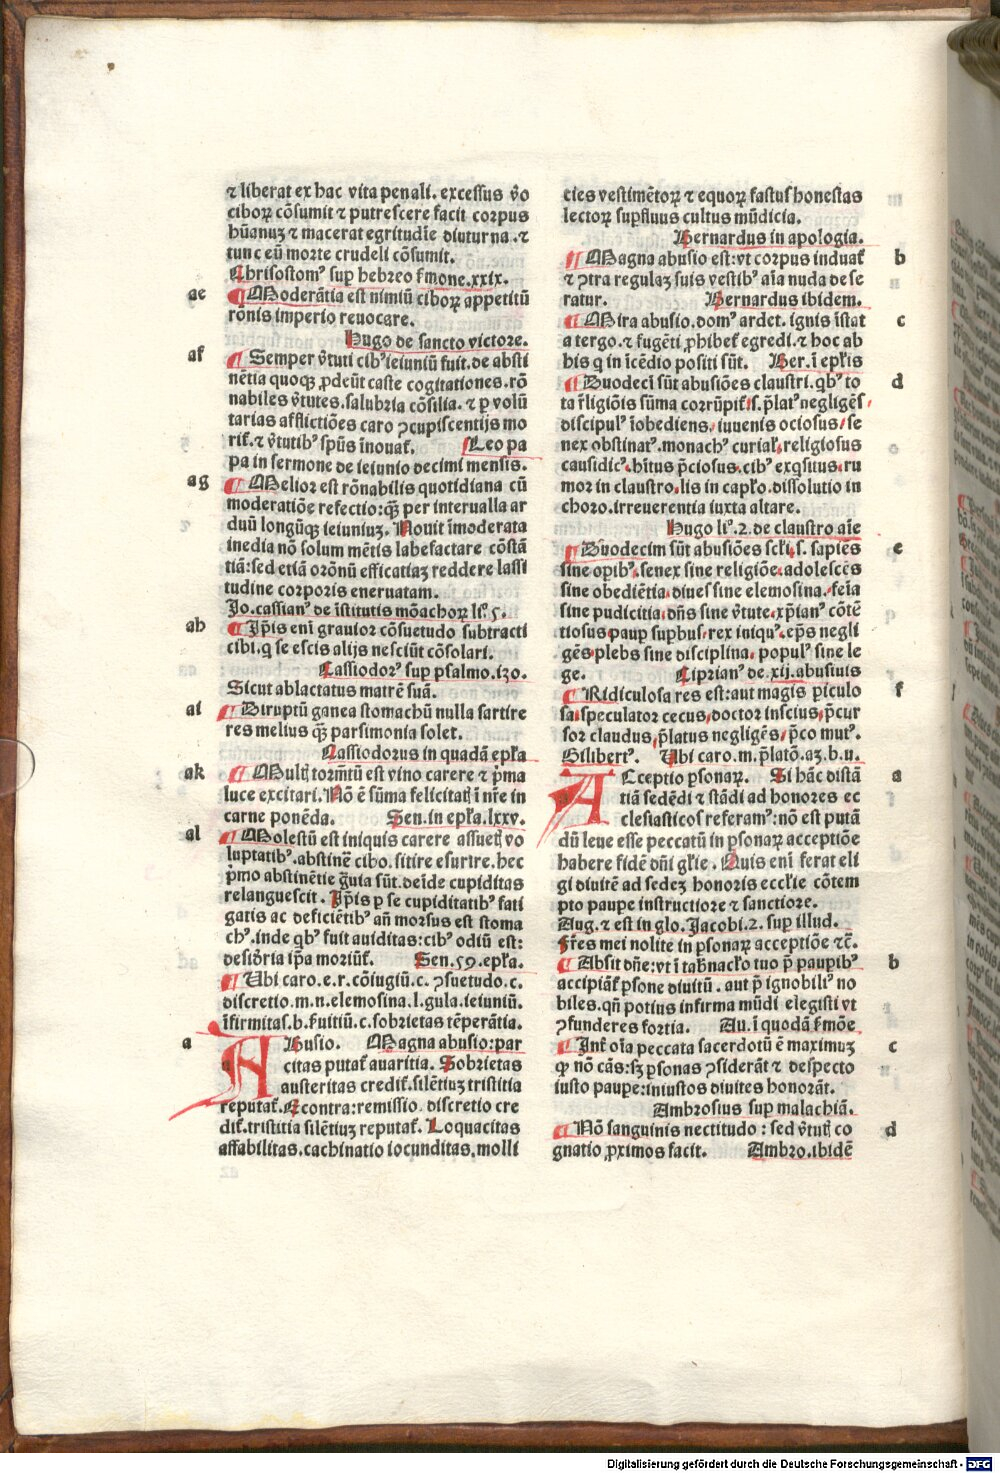 ⁊ liberat ex hac vita penali. excessus v̾o
ciboꝝ cōsumit ⁊ putrescere facit corpus
hūanuꝫ ⁊ macerat egritudīe diuturna.⁊
tunc eū morte crudeli cōsumit.
Chrisostomꝰ sup hebreo ẜmone.xxix.
ae
¶Moderātia est nimiū ciboꝝ appetitū
rōnis imperio reuocare.
Hugo de sancto victore.
af
¶ Semper v̾tuti cibꝰ ieiuniū fuit.de absti
nētia quoqꝫ ꝓdeūt caste cogitationes.rō
nabiles v̾tutes.salubria cōsilia.⁊ ꝑ volū
tarias afflictiōes caro ꝯcupiscentijs mo
rit̉.⁊ v̾tutibꝰ spūs īnouat̉.
Leo pa
pa in sermone de ieiunio decimi mensis.
ag
¶ Melior est rōnabilis quotidiana cū
moderatiōe refectio:qꝫ̄ per interualla ar
duū longūqꝫ ieiuniuꝫ. Nouit īmoderata
inedia nō solum mētis labefactare cōstā
tiā:sed etiā orōnū efficatiaꝫ reddere lassi
tudine corporis eneruatam.
Jo.cassianꝰ de īstitutis mōachoꝝ liᵒ.5.
ah
¶ Ip̄is eni grauior cōsuetudo subtracti
cibi.q se escis alijs nesciūt cōsolari.
Cassiodorꝰ sup psalmo.130.
Sicut ablactatus matrē suā.
ai
¶Diruptū ganea stomachū nulla sartire
res melius qꝫ̄ parsimonia solet.
Cassiodorus in quadā ep̄ka
ak
¶ Multꝫ torm̄tū est vino carere ⁊ p̄ma
luce excitari.Nō ē sūma felicitatꝭ ī nr̄e in
carne ponēda.
Sen.in ep̄ka.lxxv.
al
¶Molestū est iniquis carere assuetꝭ vo
luptatibꝰ.abstinē cibo.sitire esurire.hec
p̄mo abstinētie g̾uia sūt.deīde cupiditas
relanguescit. Ip̄is ꝑ se cupiditatibꝰ fati
gatis ac deficiētibꝰ añ morsus est stoma
chꝰ.inde qbꝰ fuit auiditas:cibꝰ odiū est:
desidria ip̄a moriūt̉.
Sen.59.ep̄ka.
¶ Ubi caro.e.r.cōiugiū.c.ꝯsuetudo.c.
discretio.m.n.elemosina.l.gula.ieiuniū.
īfirmitas.b.fuitiū.c.sobrietas tēperātia.
a
ABusio. Magna abusio:par
citas putat̉ auaritia. Sobrietas
austeritas credit̉.silētiuꝫ tristitia
reputat̉.Econtra:remissio discretio cre
dit̉.tristitia silētiuꝫ reputat̉. Loquacitas
affabilitas.cachinatio iocunditas.molli
cies vestimētoꝝ ⁊ equoꝝ fastusꝰ honestas
lectoꝝ supfluus cultus mūdicia.
Bernardus in apologia.
b
¶ Magna abusio est:vt corpus induat̉
⁊ ꝯtra regulaꝫ suis vestibꝰ aīa nuda dese
ratur.
Bernardus ibidem.
c
¶ Mira abusio.domꝰ ardet.ignis īstat
a tergo.⁊ fugēti ꝓhibet̉ egredi.⁊ hoc ab
his q in īcēdio positi sūt.
Ber.ī ep̄kis
d
¶ Duodecī sūt abusiōes claustri.qbꝰ to
ta r̄ligiōis sūma corrūpit̉.s.p̄latꝰ negligēs.
discipulꝰ īobediens.iuuenis ociosus.se
nex obstinatꝰ.monachꝰ curial̉.religiosus
causidicꝰ.hītus p̄ciosus.cibꝰ exqsitus.ru
mor in claustro.lis in cap̄ko.dissolutio in
choro.irreuerentia iuxta altare.
Hugo liᵒ.2.de claustro aīe
e
¶ Duodecim sūt abusiōes scl̄i.s. sapiēs
sine opibꝰ.senex sine religiōe.adolescēs
sine obediētia.diues sine elemosina.feīa
sine pudicitia.dn̄s sine v̾tute.xp̄ianꝰ cōtē
tiosus.paup supbus.rex iniquꝰ.ep̄s negli
gēs.plebs sine disciplina.populꝰ sine le
ge.
Ciprianꝰ de.xij.abusiuis
f
¶ Ridiculosa res est:aut magis piculo
sa.speculator cecus.doctor inscius.p̄cur
sor claudus.p̄latus negligēs.p̄co mutꝰ.
Gilibertꝰ. Ubi caro.m.p̄latō.aꝫ.b.u.
a
ACceptio psonaꝝ. Si hāc distā
tiā sedēdi ⁊ stādi ad honores ec
clesiasticos referamꝰ:nō est putā
dū leue esse peccatū in psonaꝝ acceptiōe
habere fidē dn̄i gl̄ie. Quis enī ferat eli
gi diuitē ad sedeꝫ honoris eccl̄ie cōtem
pto paupe instructiore ⁊ sanctiore.
Aug.⁊ est in glo.Jacobi.2.sup illud.
Fr̄es mei nolite in psonaꝝ acceptiōe ⁊c̄.
b
¶ Absit dn̄e:vt ī tab̾nacl̄o tuo p̄ paupibꝰ
accipiāt̉ psone diuitū.aut p̄ ignobilibꝰ no
biles.qn̄ potius infirma mūdi elegisti vt
ꝯfunderes fortia.
Au.ī quodā ẜmōe
c
¶ Int̾ oīa peccata sacerdotū ē maximuꝫ
ꝙ nō cās:sꝫ psonas ꝯsiderāt ⁊ despecto
iusto paupe:iniustos diuites honorāt.
Ambrosius sup malachiā.
d
¶ Nō sanguinis nectitudo:sed v̾tutꝭ co
gnatio ꝓximos facit.
Ambro.ibidē
Digitalisierung gefördert durch die Deutsche Forschungsgemeinschaft - DFG